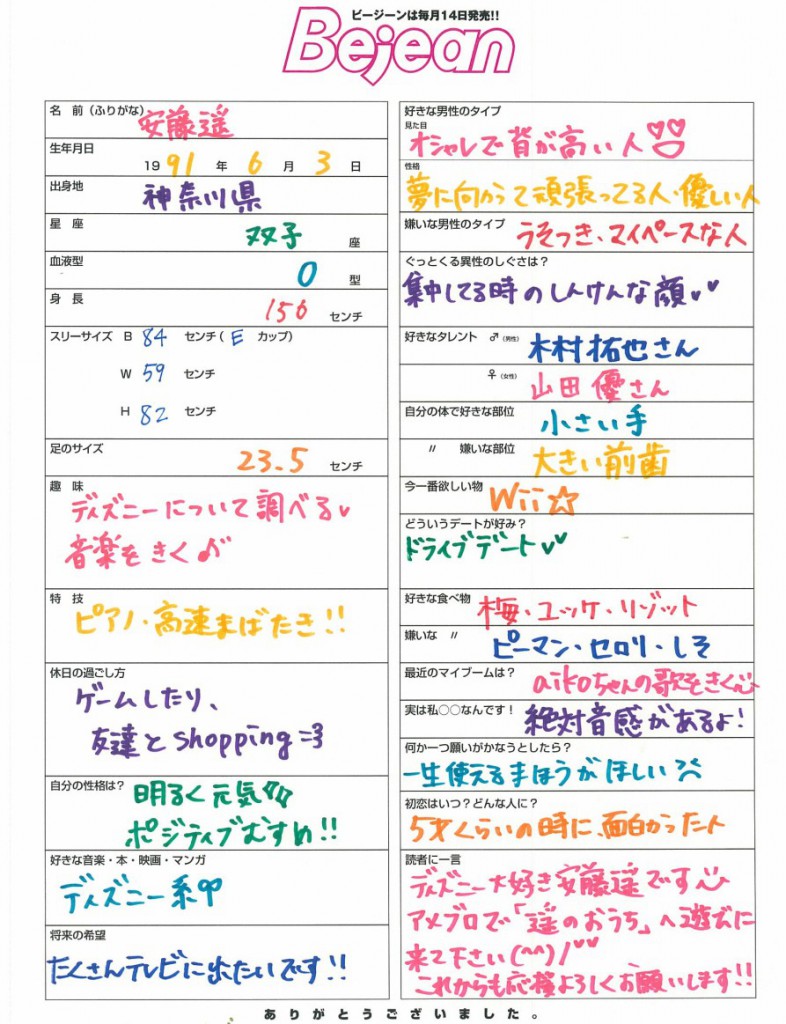 ビージーンは毎月14日発売!!
Bejean
名 前 (ふりがな)
安藤遥
生年月日
1991年6月3日
出身地
神奈川県
星 座
双子 座
血液型
O 型
身 長
156 センチ
スリーサイズ B 84 センチ( E カップ)
W 59 センチ
H 82 センチ
足のサイズ
23.5 センチ
趣 味
ディズニーについて調べる♥
音楽をきく♪
特 技
ピアノ・高速まばたき!!
休日の過ごし方
ゲームしたり、
友達とshopping=3
自分の性格は?
明るく元気
ポジティブむすめ!!
好きな音楽・本・映画・マンガ
ディズニー系
将来の希望
たくさんテレビに出たいです!!
好きな男性のタイプ
見た目
オシャレで背が高い人
性格
夢に向かって頑張ってる人・優しい人
嫌いな男性のタイプ
うそつき、マイペースな人
ぐっとくる異性のしぐさは?
集中してる時のしんけんな顔♥♥
好きなタレント ♂(男性) 木村拓也さん
♀(女性) 山田優さん
自分の体で好きな部位
小さい手
〃 嫌いな部位
大きい前歯
今一番欲しい物
Wii☆
どういうデートが好み?
ドライブデート♥♥
好きな食べ物
梅・ユッケ・リゾット
嫌いな 〃
ピーマン・セロリ・しそ
最近のマイブームは?
aikoちゃんの歌をきく
実は私○○なんです!
絶対音感があるよ!
何か一つ願いがかなうとしたら?
一生使えるまほうがほしい
初恋はいつ?どんな人に?
5才くらいの時に、面白かった人
読者に一言
ディズニー大好き安藤遥です
アメブロで「遥のおうち」へ遊びに
来て下さい(^^)/♥♥
これからも応援よろしくお願いします!!
ありがとうございました。